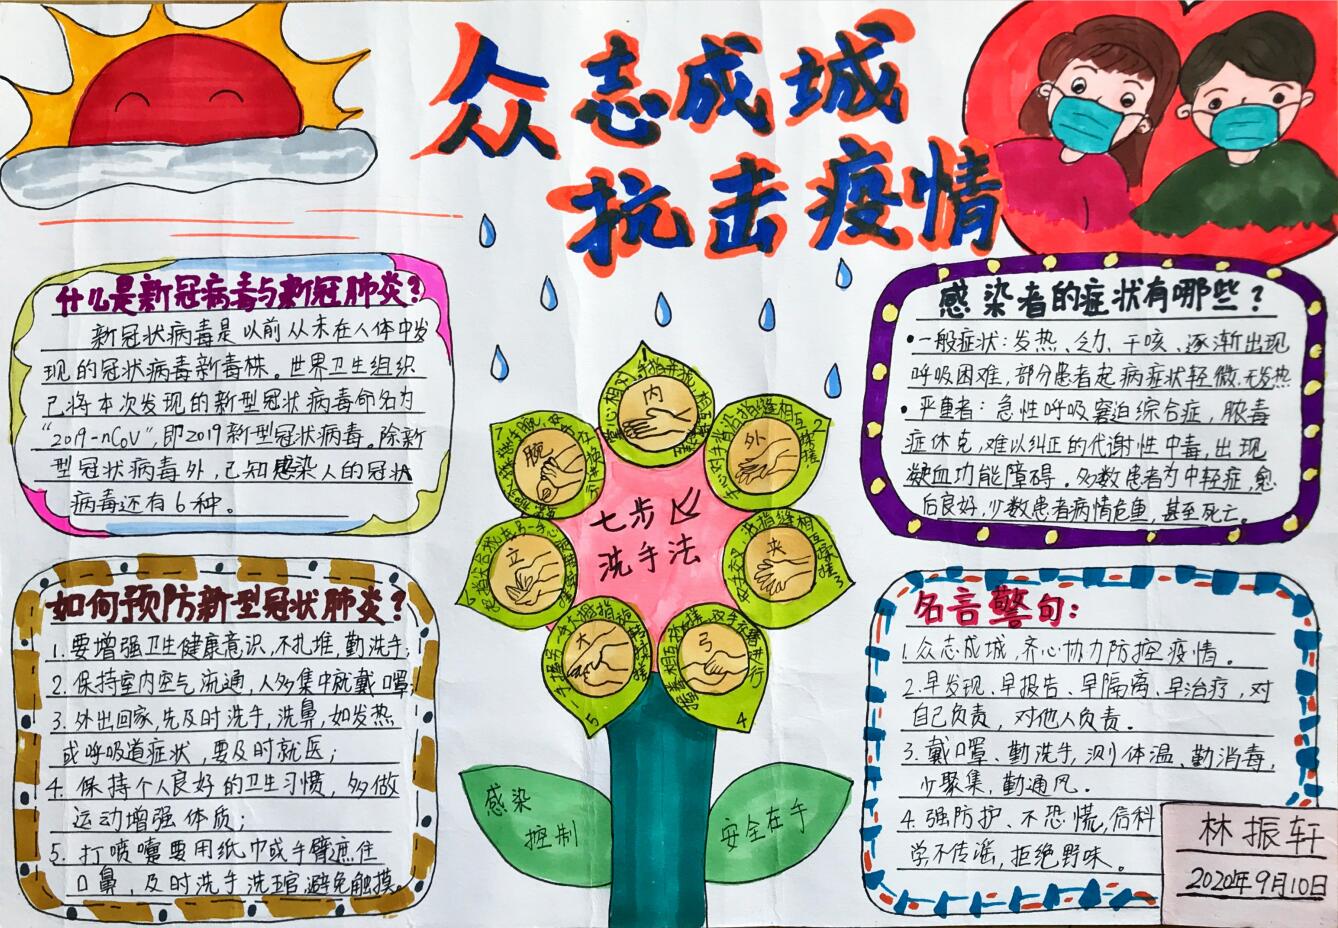 众志成城
抗击疫情
什么是新冠病毒与新冠肺炎?
新冠状病毒是以前从未在人体中发
现的冠状病毒新毒株。世界卫生组织
已将本次发现的新型冠状病毒命名为
“2019-nCoV”,即2019新型冠状病毒。除新
型冠状病毒外,已知感染人的冠状
病毒还有6种。
感染者的症状有哪些?
•一般症状:发热、乏力、干咳、逐渐出现
呼吸困难,部分患者起病症状轻微,无发热
•严重者:急性呼吸窘迫综合症,脓毒
症休克,难以纠正的代谢性中毒,出现
凝血功能障碍。多数患者为中轻症,愈
后良好,少数患者病情危重,甚至死亡。
如何预防新型冠状肺炎?
1.要增强卫生健康意识,不扎堆,勤洗手;
2.保持室内空气流通,人多集中就戴口罩;
3.外出回家,先及时洗手,洗鼻,如发热
或呼吸道症状,要及时就医;
4.保持个人良好的卫生习惯,多做
运动增强体质;
5.打喷嚏要用纸巾或手臂遮住
口鼻,及时洗手
避免触摸。
七步
洗手法
内
外
2
夹
3
弓
4
大
5
立
6
腕
7
感染
控制
安全在手
名言警句:
1.众志成城,齐心协力防控疫情。
2.早发现、早报告、早隔离、早治疗,对
自己负责,对他人负责.
3.戴口罩、勤洗手,测体温、勤消毒,
少聚集,勤通风.
4.强防护、不恐慌,信科
学不传谣,拒绝野味。
林振轩
2020年9月10日